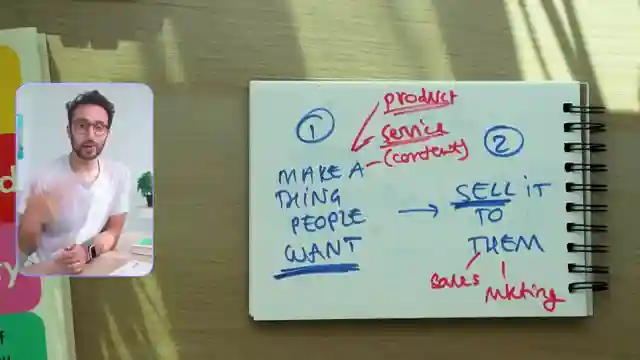 ①
product
service
(content)
MAKE A
THING
PEOPLE
WANT
→
②
SELL iT
TO
THEM
sales
mkting
d
y
f